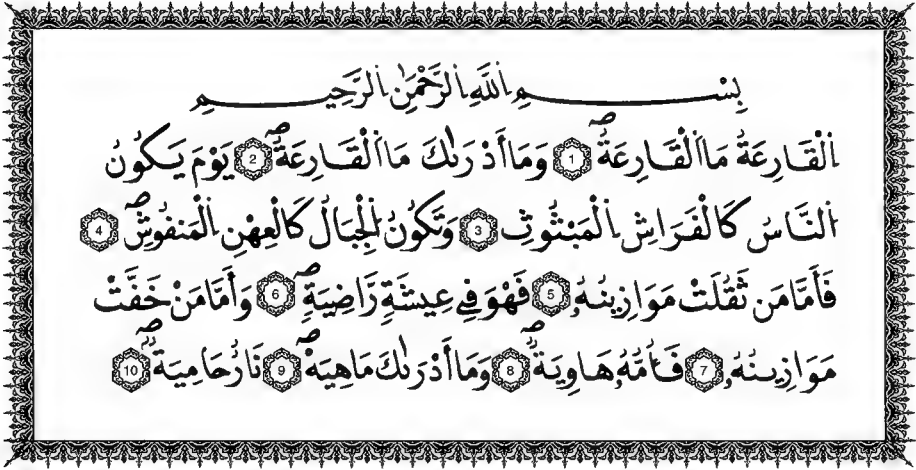 بِسْمِ اللَّهِ الرَّحْمَٰنِ الرَّحِيمِ
اَلْقَارِعَةُ مَا اَلْقَارِعَةُۖ 1 وَمَا أَدْرَىٰكَ مَا اَلْقَارِعَةُۖ 2 يَوْمَ يَكُونُ
اُلنَّاسُ كَالْفَرَاشِ اِلْمَبْثُوثِ 3 وَتَكُونُ اُلْجِبَالُ كَالْعِهْنِ اِلْمَنفُوشِۖ 4
فَأَمَّا مَن ثَقُلَتْ مَوَازِينُهُۥ 5 فَهْوَ فِے عِيشَةٍ رَّاضِيَةٍۖ 6 وَأَمَّا مَنْ خَفَّتْ
مَوَازِينُهُۥ 7 فَأُمُّهُۥ هَاوِيَةٌۖ 8 وَمَا أَدْرَىٰكَ مَا هِيَهْۖ 9 نَارٌ حَامِيَةٌۖ 10